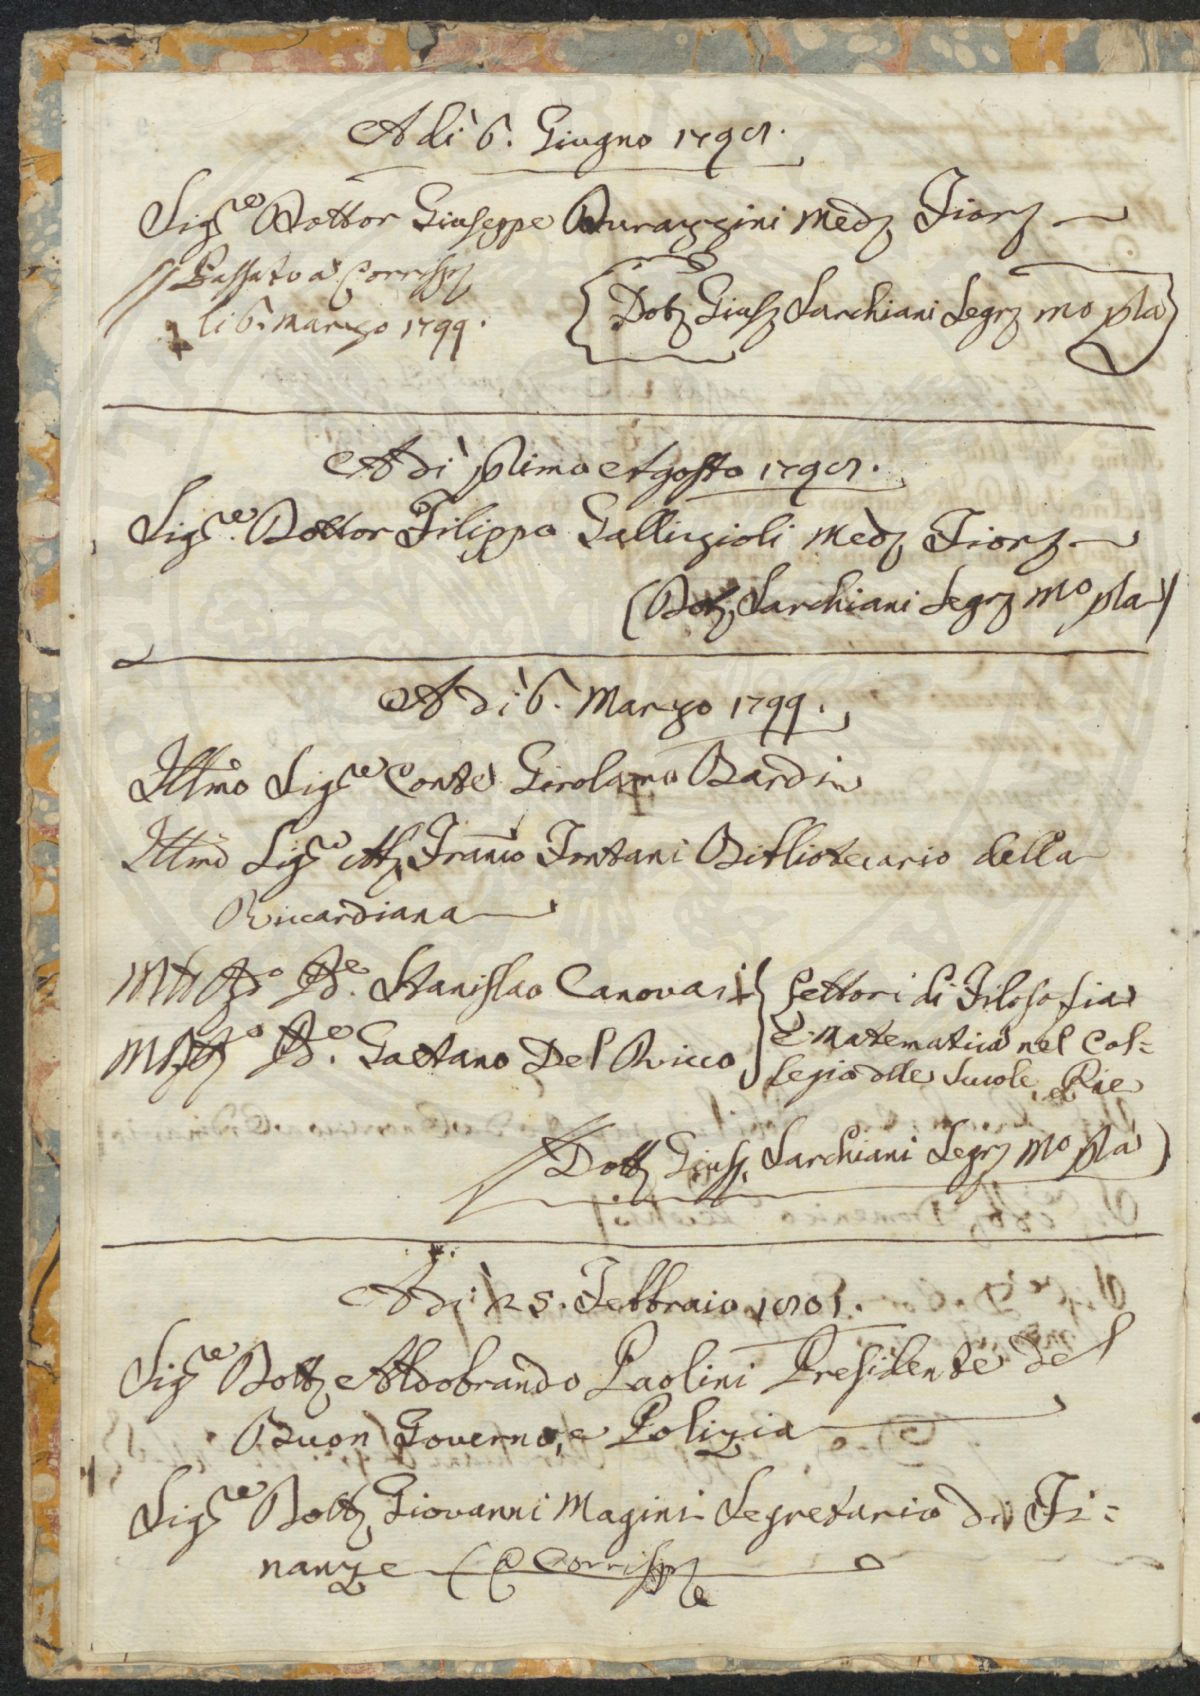 A dì 6. Giugno 1798.
Sig.re Dottor Giuseppe Durazzini Med. Fior.
Passato a Corrisp.
li 6. Marzo 1799.
Dott. Gius. Sarchiani Segr. mo pla
Adì primo Agosto 1798.
Sig.re Dottor Filippo Gallizioli Med. Fior.
(Dott. Sarchiani Segr. mo pla)
Adì 6. Marzo 1799.
Illmo Sig.re Conte Girolamo Bardi
Illmo Sig.re Ab. Franco Fontani Bibliotecario della
Riccardiana
Stanislao Canovai
Gaetano Del Ricco
Lettori di Filosofia
e Matematica nel Col=
legio delle Scuole Pie
Dott. Gius. Sarchiani Segr. mo pla)
Adì 25. Febbraio 1801.
Sig.re Dott. Aldobrando Paolini Presidente del
Buon Governo, e Polizia
Sig.re Dott. Giovanni Magini Segretario di Fi=
nanze Corrisp.